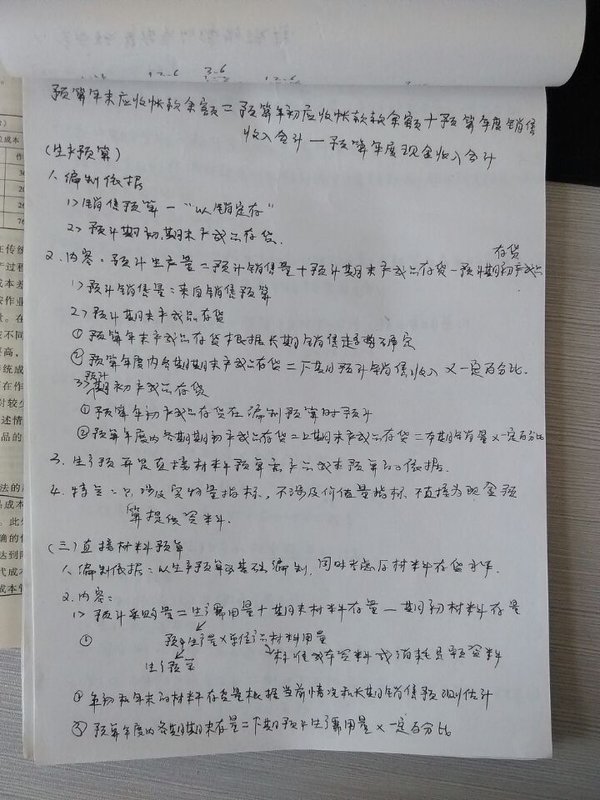 12.6 3.6 12.6
预算年末应收帐款余额=预算年初应收帐款余额+预算年度销售
收入合计-预算年度现金收入合计
(生产预算)
1、编制依据
1>销售预算-"以销定存"
2>预计期初、期末产成品存货.
存货
2、内容:预计生产量=预计销售量+预计期末产成品存货-预计期初产成品
1>预计销售量:来自销售预算
2>预计期末产成品存货
①预算年末产成品存货根据长期销售趋势确定
②预算年度内各期期末产成品存货=下期预计销售收入×一定百分比.
预计
3>期初产成品存货
①预算年初产成品存货在编制预算时预计
②预算年度内各期期初产成品存货=上期期末产成品存货=本期销售量×一定百分比
3、生产预算是直接材料预算和产品成本预算的依据.
4、特点:只涉及实物量指标,不涉及价值量指标 不直接为现金预
算提供资料.
(三)直接材料预算
1、编制依据:以生产预算为基础编制,同时考虑原材料存货水平.
2.内容:
1>预计采购量=生产需用量+期末材料存量-期初材料存量
① 预计生产量×单位产品材料用量
生产预算 标准成本资料或消耗定额资料
②年初和年末的材料存货量根据当前情况和长期销售预测估计
③预算年度内各期期末存量=下期预计生产需用量×一定百分比